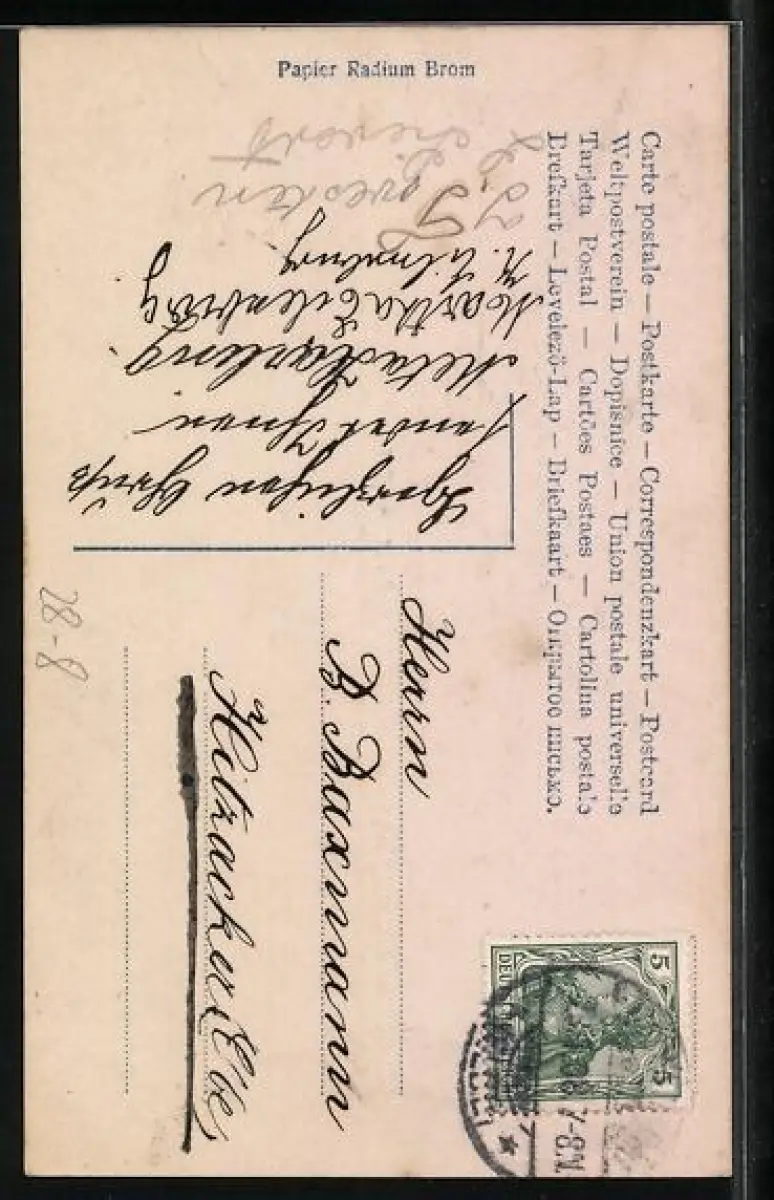 Papier Radium Brom
Carte postale – Postkarte – Correspondenzkart – Postcard
Weltpostverein – Dopisnice – Union postale universelle
Tarjeta Postal – Cartões Postaes – Cartolina postale
Brefkort – Levelező-Lap – Briefkaart – Открытое письмо.
5 5
★
Herrn
B. Baxmann
Hitzacker Elbe
Herzlichen Gruß
sendet Ihnen
Meta
Martha Eilenburg
28-8